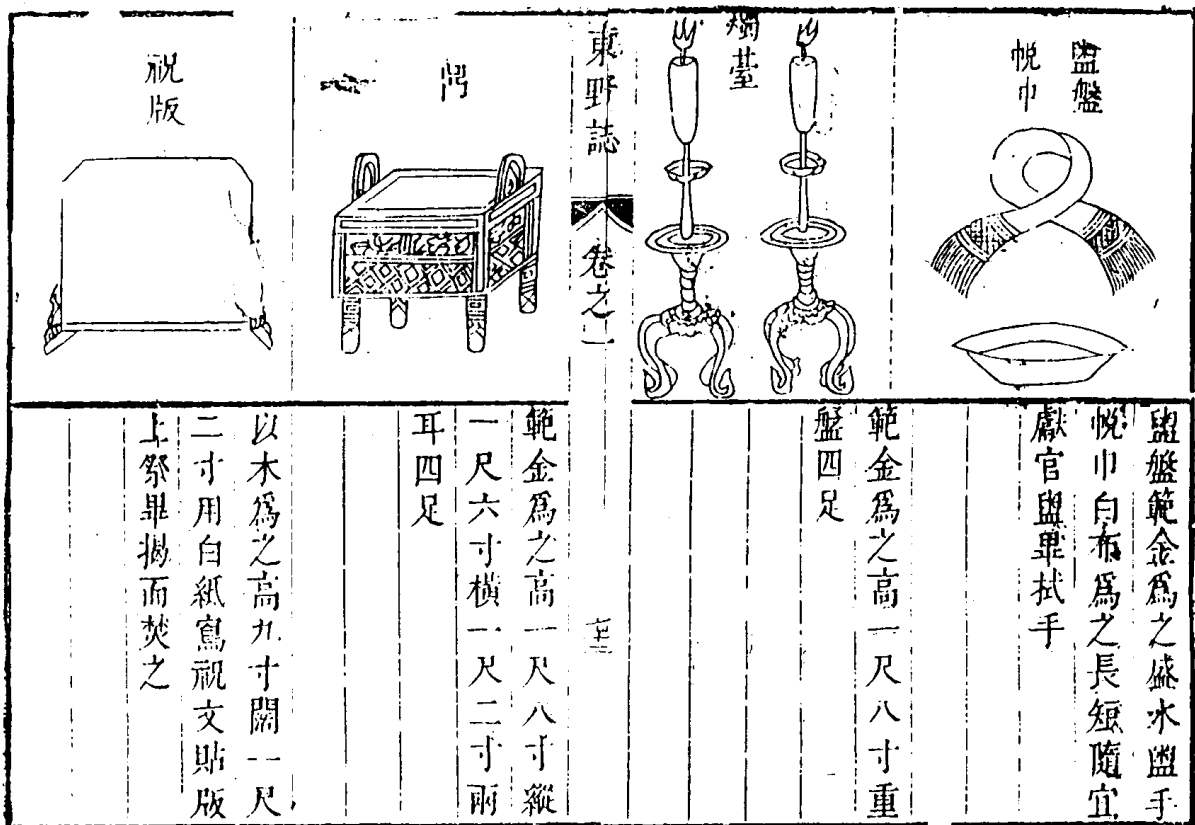 盥盤
帨巾
盥盤範金爲之盛水盥手
帨巾白布爲之長短隨宜
獻官盥畢拭手
燭臺
範金爲之高一尺八寸重
盤四足
東野誌
卷之一
範金爲之高一尺八寸縱
一尺六寸橫一尺二寸兩
耳四足
祝版
以木爲之高九寸闊一尺
二寸用白紙寫祝文貼版
上祭畢揭而焚之